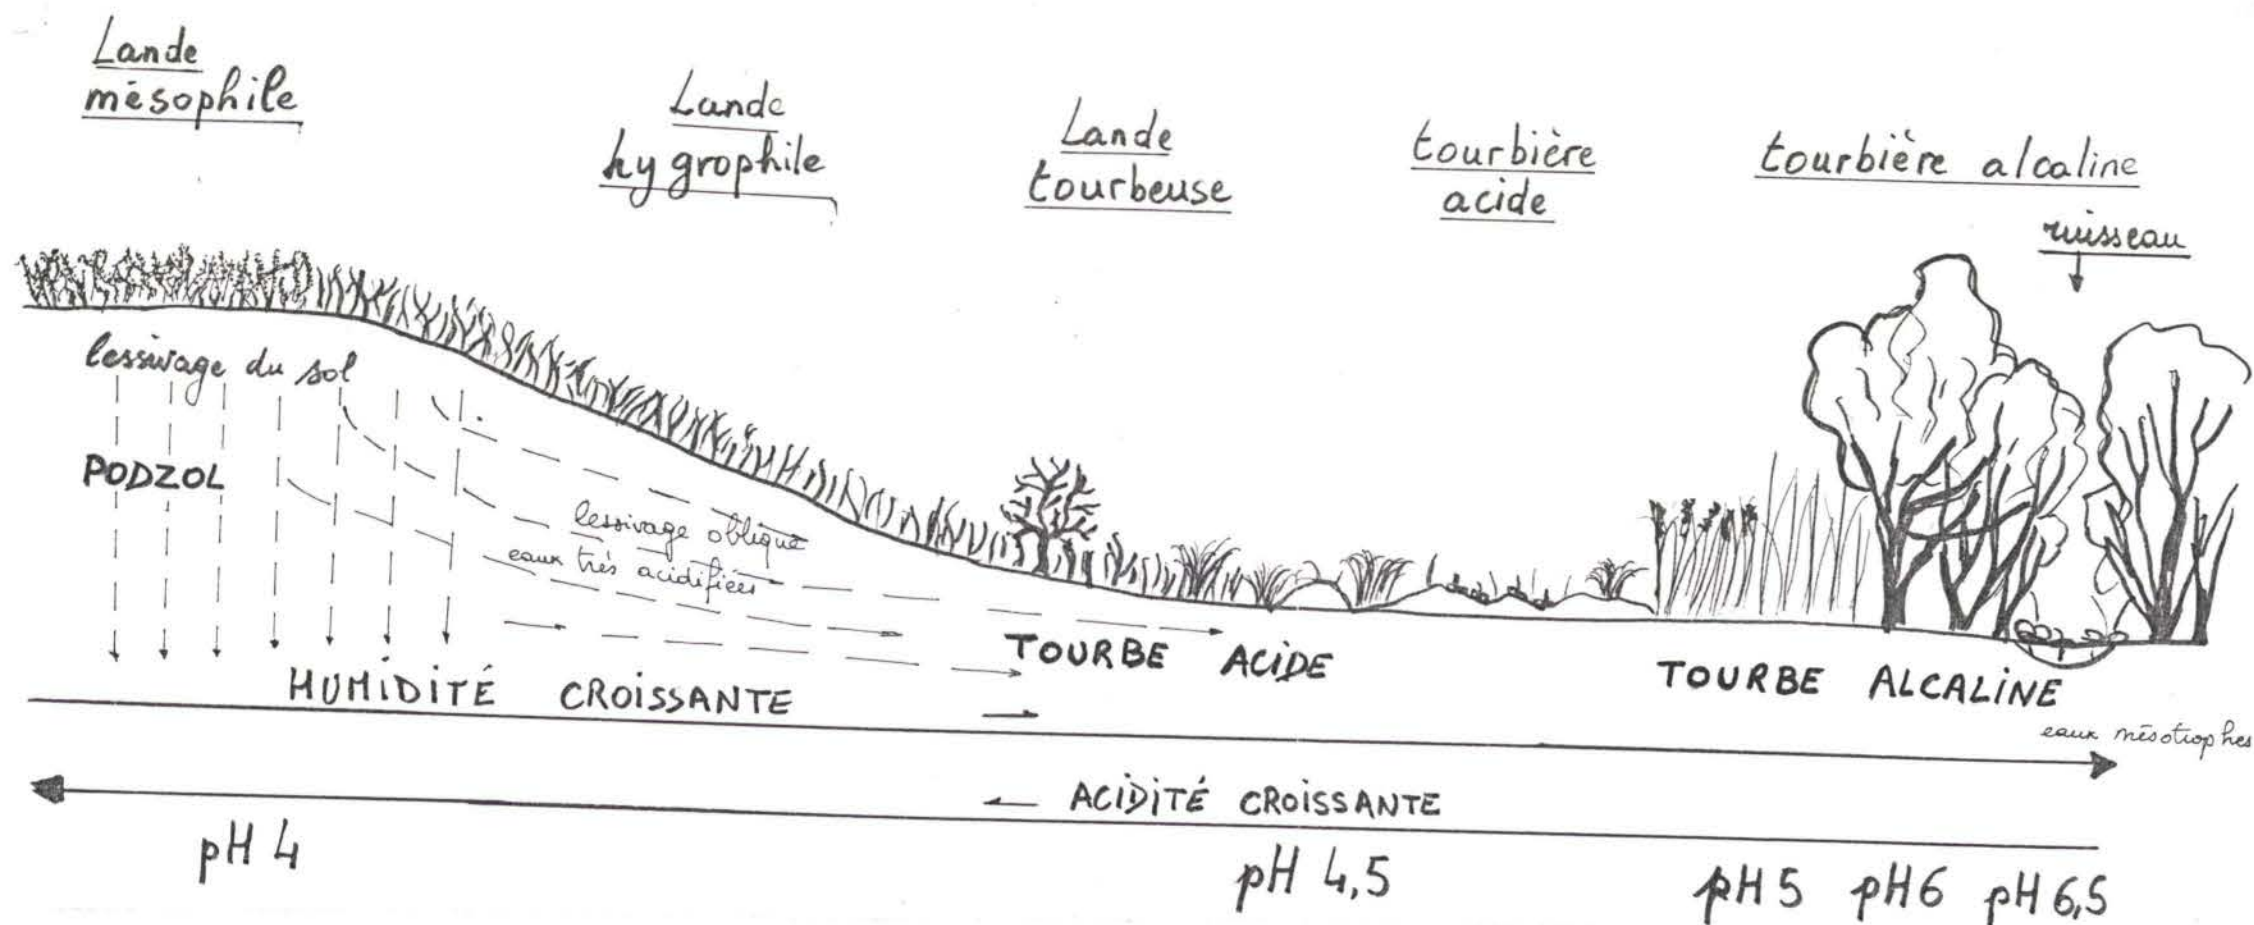 Lande
mésophile
Lande
hygrophile
Lande
tourbeuse
tourbière
acide
tourbière alcaline
ruisseau
lessivage du sol
PODZOL
lessivage oblique
eaux très acidifiées
TOURBE ACIDE
TOURBE ALCALINE
HUMIDITÉ CROISSANTE
eaux mésotrophes
ACIDITÉ CROISSANTE
pH 4
pH 4,5
pH 5
pH 6
pH 6,5